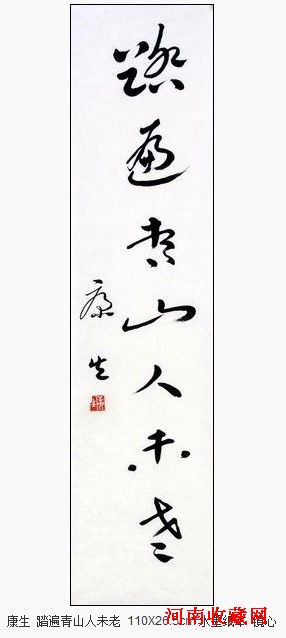 踏遍青山人未老
康生
康生 踏遍青山人未老 110X26
河南收藏网